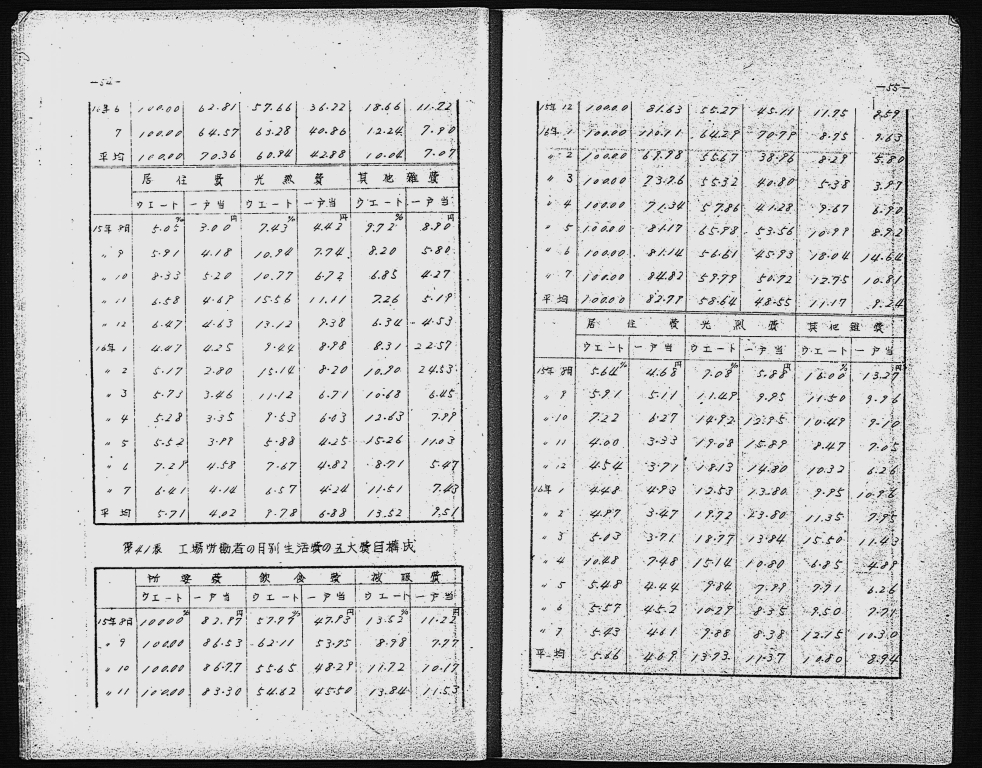 —54—
16年6 100.00 62.81 57.66 36.22 18.66 11.72
7 100.00 64.57 63.28 40.86 12.24 7.90
平均 100.00 70.36 60.94 42.88 10.04 7.07
居住費 光熱費 其他雑費
ウエート 一戸当 ウエート 一戸当 ウエート 一戸当
15年8月 5.05% 3.00円 7.43% 4.42円 9.72% 8.90円
〃9 5.91 4.18 10.94 7.74 8.20 5.80
〃10 8.33 5.20 10.77 6.72 6.85 4.27
〃11 6.58 4.69 15.56 11.11 7.26 5.19
〃12 6.47 4.63 13.12 9.38 6.34 4.53
16年1 4.07 4.25 9.44 8.98 8.31 22.57
〃2 5.17 2.80 15.14 8.20 10.90 24.53
〃3 5.73 3.46 11.12 6.71 10.68 6.45
〃4 5.28 3.35 9.53 6.03 12.63 7.99
〃5 5.52 3.99 5.88 4.25 15.26 11.03
〃6 7.29 4.58 7.67 4.82 8.71 5.47
〃7 6.41 4.14 6.57 4.24 11.51 7.43
平均 5.71 4.02 9.78 6.88 13.52 9.51
第41表 工場労働者の月別生活費の五大費目構成
所要費 飲食費 被服費
ウエート 一戸当 ウエート 一戸当 ウエート 一戸当
15年8月 100.00% 82.97円 57.79% 47.93円 13.52% 11.22円
〃9 100.00 86.53 62.11 53.75 8.98 7.77
〃10 100.00 86.77 55.65 48.29 11.72 10.17
〃11 100.00 83.30 54.62 45.50 13.84 11.53
—55—
15年12 100.00 81.63 55.27 45.11 11.75 9.59
16年1 100.00 110.11 64.29 70.79 8.75 9.63
〃2 100.00 69.98 55.67 38.96 8.29 5.80
〃3 100.00 73.76 55.32 40.80 5.38 3.97
〃4 100.00 71.34 57.86 41.28 9.67 6.90
〃5 100.00 81.17 65.98 53.56 10.99 8.92
〃6 100.00 81.14 56.61 45.93 18.04 14.64
〃7 100.00 84.82 59.79 50.72 12.75 10.81
平均 100.00 82.79 58.64 48.55 11.17 9.24
居住費 光熱費 其他雑費
ウエート 一戸当 ウエート 一戸当 ウエート 一戸当
15年8月 5.64% 4.68円 7.08% 5.88円 16.00% 13.27円
〃9 5.91 5.11 11.49 9.95 11.50 9.96
〃10 7.22 6.27 14.92 12.95 10.49 9.10
〃11 4.00 3.33 19.08 15.89 8.47 7.05
〃12 4.54 3.71 18.13 14.80 10.32 6.26
16年1 4.48 4.93 12.53 13.80 9.95 10.96
〃2 4.97 3.47 19.72 13.80 11.35 7.95
〃3 5.03 3.71 18.77 13.84 15.50 11.43
〃4 10.48 7.48 15.14 10.80 6.85 4.89
〃5 5.48 4.44 9.84 7.99 7.91 6.26
〃6 5.57 4.52 10.29 8.35 9.50 7.71
〃7 5.43 4.61 9.88 8.38 12.15 10.30
平均 5.66 4.69 13.73 11.37 10.80 8.94